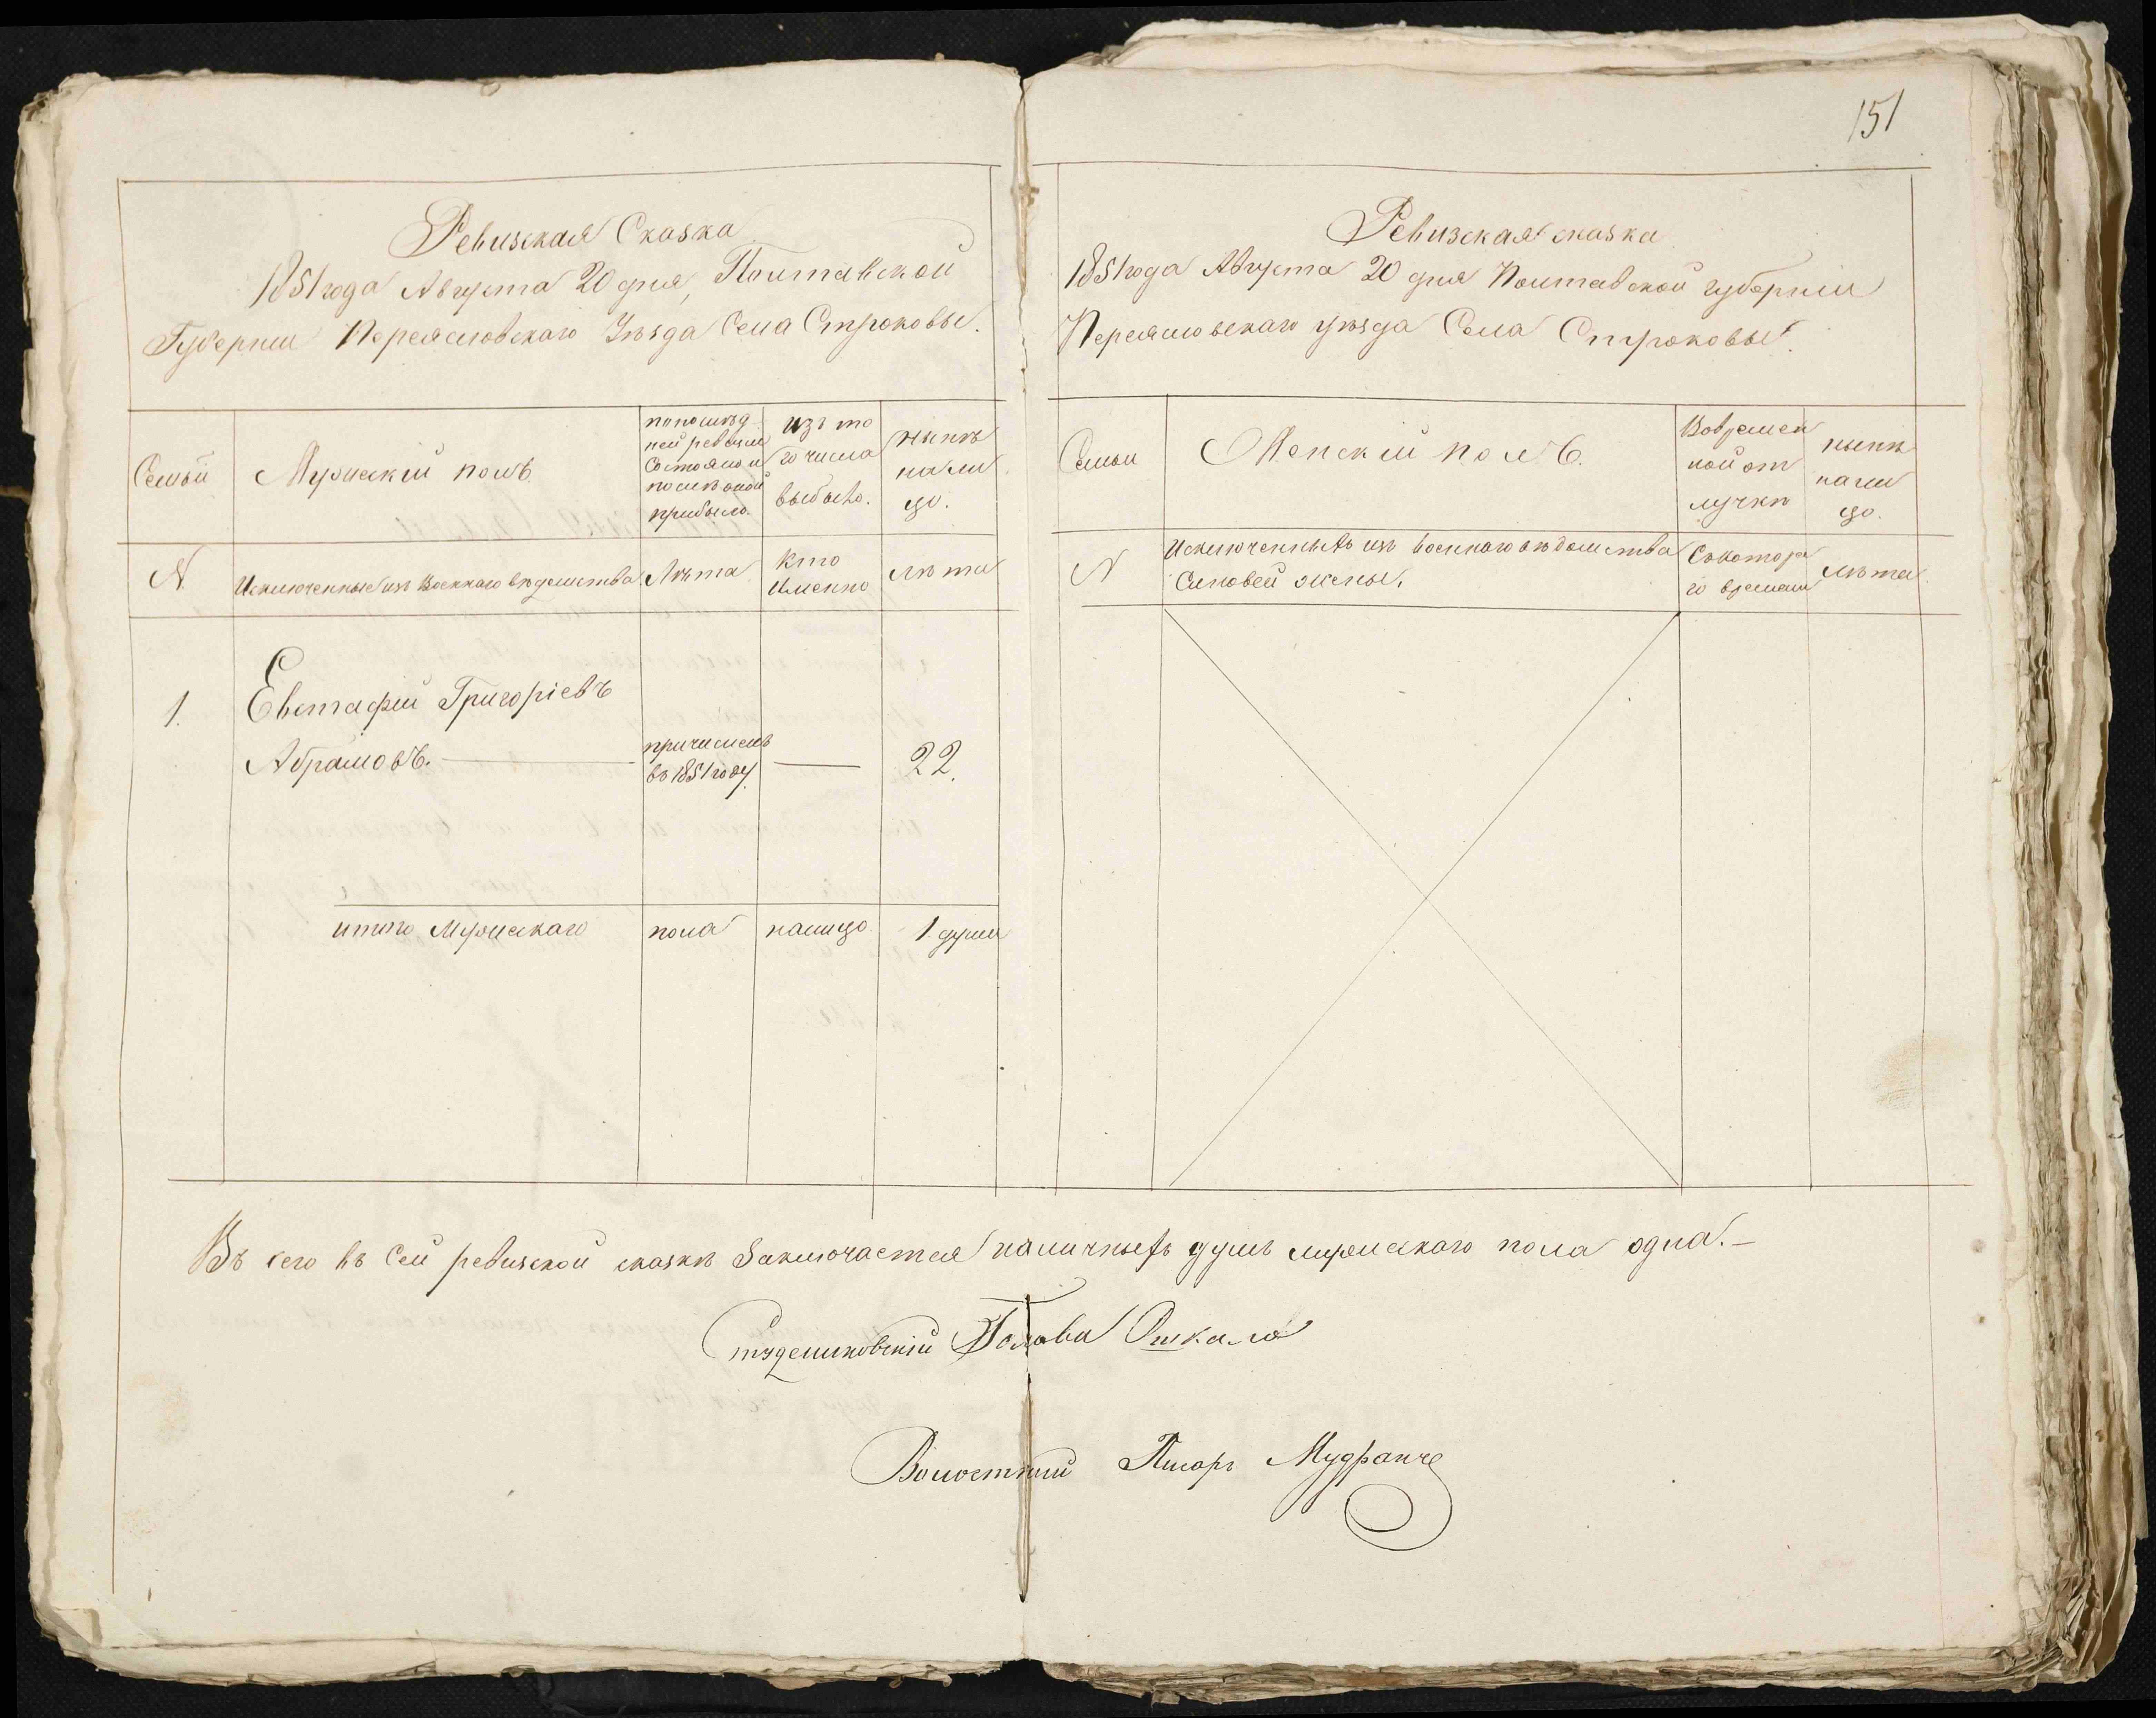 151
Ревизская Сказка
1851 года Августа 20 дня, Полтавской
Губернии Переясловскаго Уѣзда Села Строковы.
Семьи
Мужескій полъ
по послѣд-
ней ревизіи
состояло и
послѣ оной
прибыло.
изъ то
го числа
выбыло.
нынѣ
нали
цо.
N
Исключенные изъ Военнаго вѣдомства
Лѣта
Кто
Именно
лѣта
1.
Евстафій Григоріевъ
Абрамовъ.
причисленъ
въ 1851 году.
22.
итого Мужескаго пола налицо 1 душа
Ревизская сказка
1851 года Августа 20 дня Полтавской губерніи
Переясловскаго уѣзда Села Строковы.
Семьи
Женскій полъ.
Вовремен
ной от
лучкѣ
нынѣ
нали
цо.
N
Исключенныхъ изъ военнаго вѣдомства
Сыновей жены.
Съ котора
го времени
лѣта
Въ сего въ сей ревизской сказкѣ заключается наличныхъ душъ мужескаго пола одна.
Голова Ошкало
Волостный Писарь